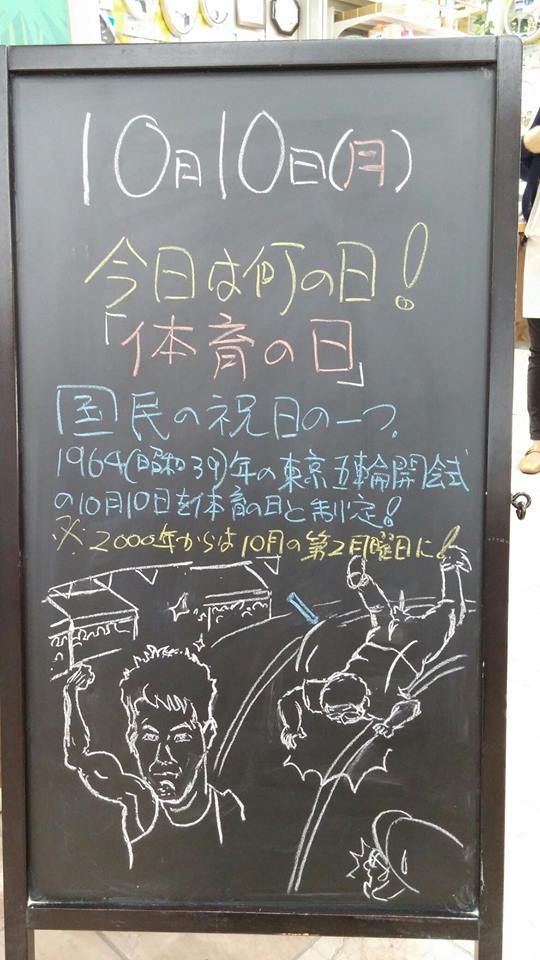 10月10日(月)
今日は何の日!
「体育の日」
国民の祝日の一つ。
1964(昭和39)年の東京五輪開会式
の10月10日を体育の日と制定!
※2000年からは10月の第2月曜日に!